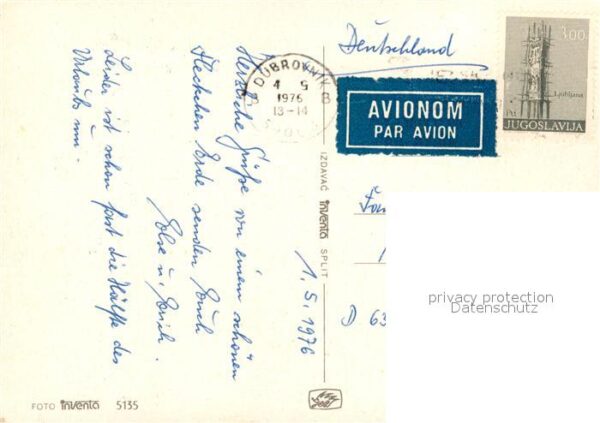 Herzliche Grüße von einem schönen
Fleckchen Erde senden Euch
Else u. Erich.
Leider ist schon fast die Hälfte des
Urlaubs um.
1.5.1976
FOTO inventa 5135
IZDAVAČ inventa SPLIT
DUBROVNIK
4 5
1976
13-14
B B
Deutschland
AVIONOM
PAR AVION
3.00
Ljubljana
JUGOSLAVIJA
D 63
privacy protection
Datenschutz